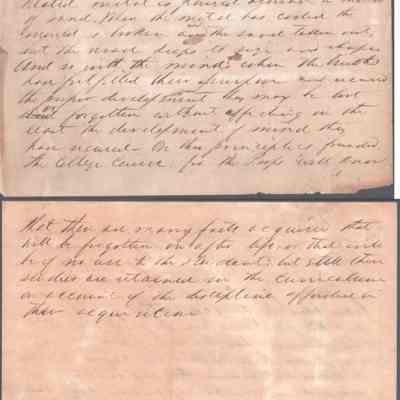 heated metal is poured around a mould
of sand. When the metal has cooled the
mould is broken and the sand taken out,
but the metal keeps its size and shape
And so with the mind: when the truths
have fulfilled their purpose and secured
the proper development they may be lost
or forgotten without affecting in the
least the development of mind they
have secured. On this principle is founded
the College Course, for the Profs well know
that there are many facts acquired that
will be forgotten in after life, or that will
be of no use to the student; but still these
studies are retained in the curriculum
on account of the discipline afforded in
their acquisition.